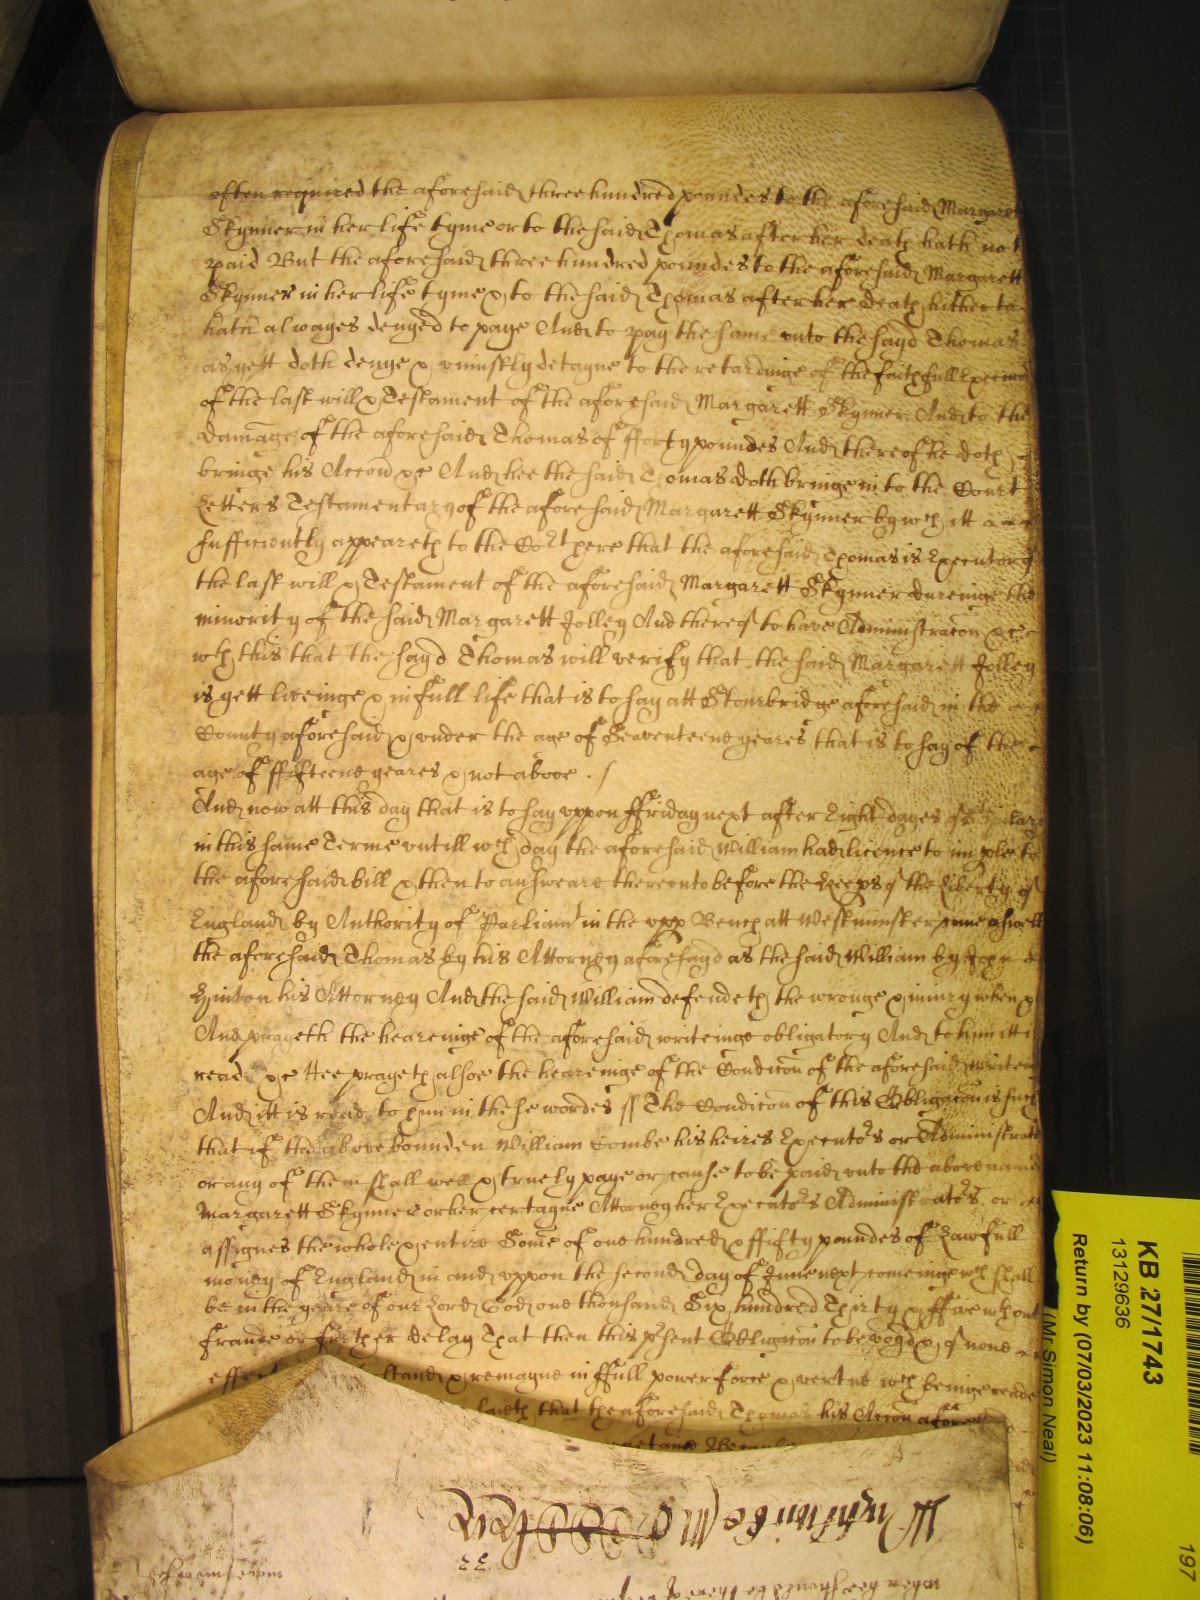 often required the aforesaid three hundred poundes to the aforesaid Margarett
Skynner in her life tyme or to the said Thomas after her death hath not
paid But the aforesaid three hundred poundes to the aforesaid Margarett
Skynner in her life tyme & to the said Thomas after her death hitherto
hath alwayes denyed to paye And to pay the same unto the sayd Thomas
as yett doth denye & uniustly detayne to the retardinge of the faithfull
of the last will & Testament of the aforesaid Margarett Skynner And to the
damage of the aforesaid Thomas of fforty poundes And thereof he doth
bringe his Accon &c And hee the said Thomas doth bringe in to the Court
Letters Testamentary of the aforesaid Margarett Skynner by wch itt
sufficiently appeareth to the Cort here that the aforesaid Thomas is Executor of
the last will & Testament of the aforesaid Margarett Skynner dureinge the
minority of the said Margarett Jolley And thereof to have Administracon &c
wth this that the sayd Thomas will verify that the said Margarett Jolley
is yett liveinge & in full life that is to say att Stourbridge aforesaid in the
County aforesaid & under the age of Seaventeene yeares that is to say of the
age of ffifteene yeares & not above
And now att this day that is to say uppon ffriday next after Eight dayes of
in this same Terme untill wch day the aforesaid William had licence to imple to
the aforesaid bill & then to answeare thereunto before the Keeps of the Liberty of
England by Authority of Parliamt in the upp Bench att Westminster come aswell
the aforesaid Thomas by his Attorney aforesayd as the said William by John
Hinton his Attorney And the said William defendeth the wronge & iniury when &
And prayeth the heareinge of the aforesaid writeinge obligatory And to him itt is
read &c Hee prayeth alsoe the heareinge of the Condicon of the aforesaid
And itt is read to him in these wordes ss The Condicon of this Obligacon is such
that if the above bounden William Combe his heires Executors or Administrators
or any of them shall well & truely paye or cause to be paid unto the abovenamed
Margarett Skynner or her certayne Attorney her Executors Administrators or
assignes the whole & entire Some of one hundred & ffifty poundes of Lawfull
money of England in and uppon the second day of June next comeinge wch shall
be in the yeare of our Lord God one thousand Six hundred Thirty & ffive wthout
fraude or further delay That then this psent Obligacon to be voyd & of none
effect stand & remayne in ffull power force & vertue wch beinge reade
saith that the aforesaid Thomas his Accon
KB 27/1743
13129636
Return by (07/03/2023 11:08:06)
(Mr Simon Neal)
197